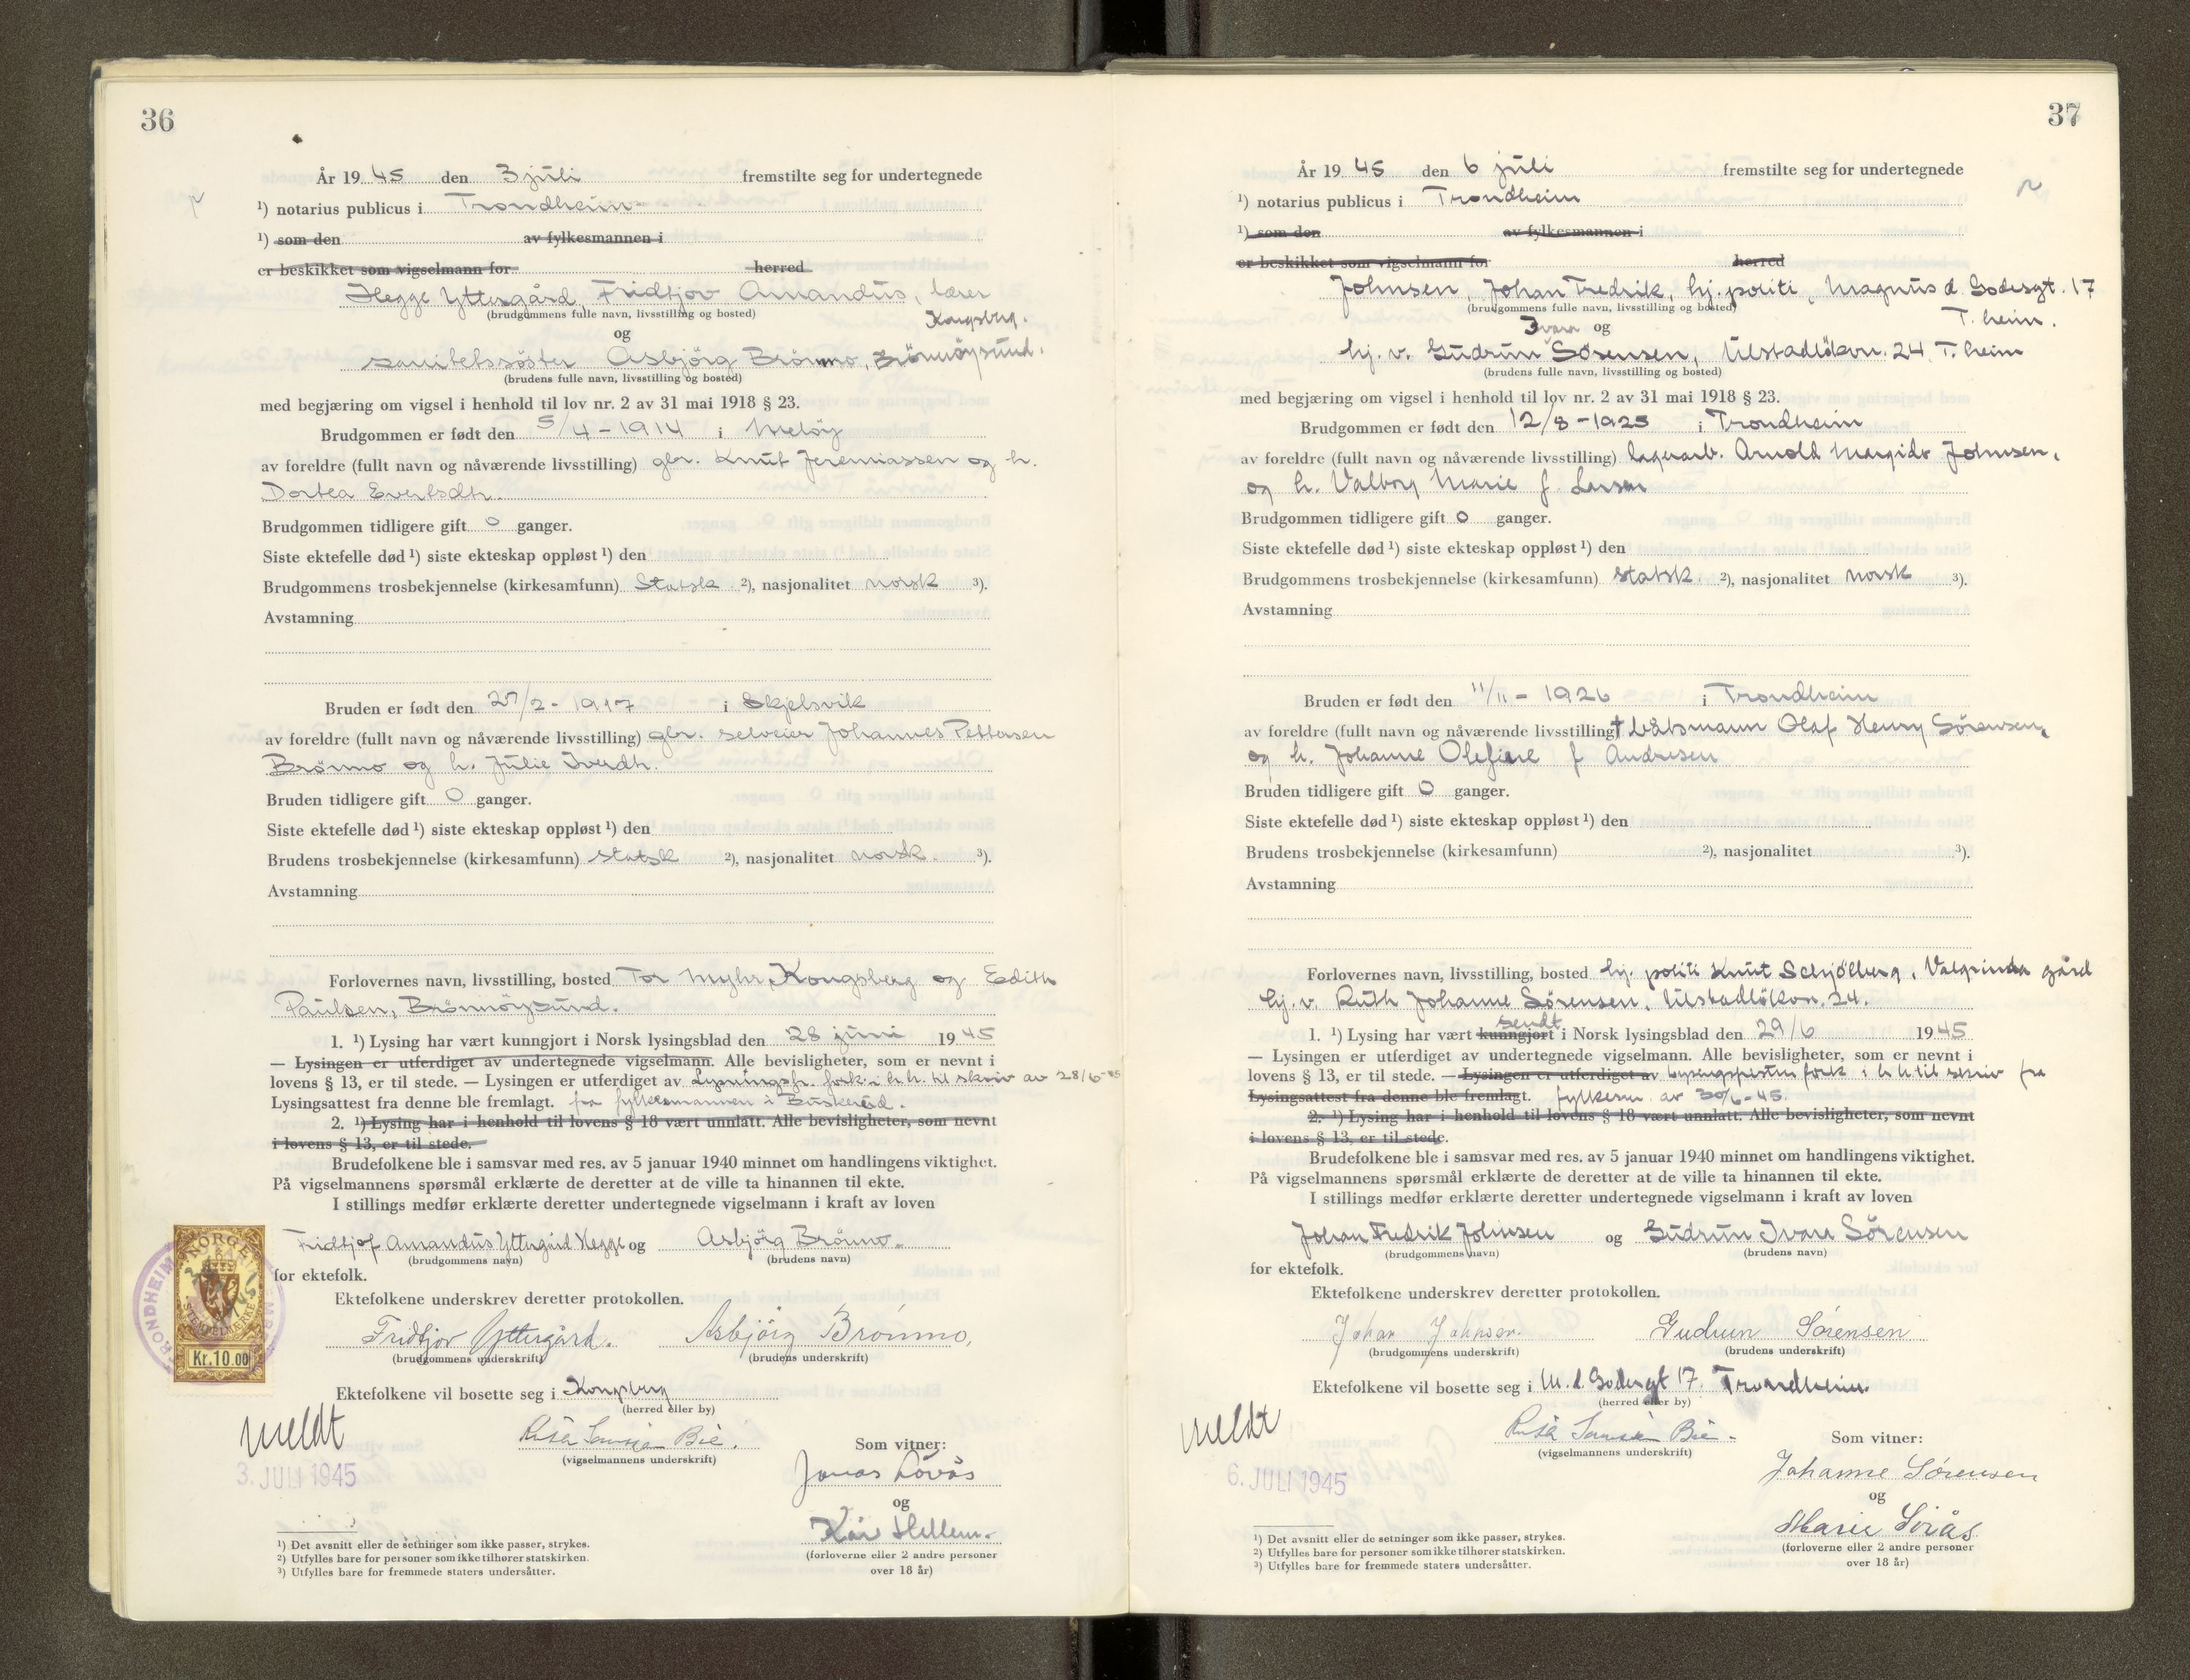 36
År 19 45 den 3 juli fremstilte seg for undertegnede
¹) notarius publicus i Trondheim
¹) som den av fylkesmannen i
er beskikket som vigselmann for herred
Hegge Yttergård, Fridtjov Amandus, lærer
(brudgommens fulle navn, livsstilling og bosted)
Kongsberg.
og
sanitetssöster Asbjörg Brönmo, Brönnöysund.
(brudens fulle navn, livsstilling og bosted)
med begjæring om vigsel i henhold til lov nr. 2 av 31 mai 1918 § 23.
Brudgommen er født den 5/4 - 1914 i Melöy
av foreldre (fullt navn og nåværende livsstilling) gbr. Knut Jeremiassen og h.
Dortea Evertsdtr.
Brudgommen tidligere gift 0 ganger.
Siste ektefelle død ¹) siste ekteskap oppløst ¹) den
Brudgommens trosbekjennelse (kirkesamfunn) Statsk ²), nasjonalitet norsk ³).
Avstamning
Bruden er født den 27/2 - 1917 i Skjelsvik
av foreldre (fullt navn og nåværende livsstilling) gbr. selveier Johannes Pettersen
Brönmo og h. Julie Iverdtr.
Bruden tidligere gift 0 ganger.
Siste ektefelle død ¹) siste ekteskap oppløst ¹) den
Brudens trosbekjennelse (kirkesamfunn) statsk ²), nasjonalitet norsk. ³).
Avstamning
Forlovernes navn, livsstilling, bosted Tor Myhr, Kongsberg og Edith
Paulsen, Brönnöysund.
1. ¹) Lysing har vært kunngjort i Norsk lysingsblad den 28 juni 19 45
— Lysingen er utferdiget av undertegnede vigselmann. Alle bevisligheter, som er nevnt i
lovens § 13, er til stede. — Lysingen er utferdiget av Lysningsfr. fork. i h.h. til skriv av 28/6-45
Lysingsattest fra denne ble fremlagt. fra fylkesmannen i Buskerud.
2. ¹) Lysing har i henhold til lovens § 18 vært unnlatt. Alle bevisligheter, som nevnt
i lovens § 13, er til stede.
Brudefolkene ble i samsvar med res. av 5 januar 1940 minnet om handlingens viktighet.
På vigselmannens spørsmål erklærte de deretter at de ville ta hinannen til ekte.
I stillings medfør erklærte deretter undertegnede vigselmann i kraft av loven
Fridtjof Amandus Yttergård Hegge og Asbjörg Brönmo
(brudgommens navn) (brudens navn)
for ektefolk.
Ektefolkene underskrev deretter protokollen.
Fridtjov Yttergård. Asbjörg Brönmo,
(brudgommens underskrift) (brudens underskrift)
NORGE
STEMPELMERKE
Kr.10.00
TRONDHEIM
Ektefolkene vil bosette seg i Kongsberg
(herred eller by)
meldt
3. JULI 1945
Bie.
(vigselmannens underskrift)
Som vitner:
Jonas Lövås
og
Kåre Hellem.
(forloverne eller 2 andre personer
over 18 år)
¹) Det avsnitt eller de setninger som ikke passer, strykes.
²) Utfylles bare for personer som ikke tilhører statskirken.
³) Utfylles bare for fremmede staters undersåtter.
37
År 19 45 den 6 juli fremstilte seg for undertegnede
¹) notarius publicus i Trondheim
¹) som den av fylkesmannen i
er beskikket som vigselmann for herred
Johnsen, Johan Fredrik, hj. politi, Magnus d. Godesgt. 17
(brudgommens fulle navn, livsstilling og bosted)
T. heim.
Ivara og
hj. v. Gudrun Sörensen, Ulstadlökvn. 24 T. heim
(brudens fulle navn, livsstilling og bosted)
med begjæring om vigsel i henhold til lov nr. 2 av 31 mai 1918 § 23.
Brudgommen er født den 12/8 - 1925 i Trondheim
av foreldre (fullt navn og nåværende livsstilling) lagerarb. Arnold Margido Johnsen,
og h. Valborg Marie f. Larsen
Brudgommen tidligere gift 0 ganger.
Siste ektefelle død ¹) siste ekteskap oppløst ¹) den
Brudgommens trosbekjennelse (kirkesamfunn) statsk. ²), nasjonalitet norsk ³).
Avstamning
Bruden er født den 11/11 - 1926 i Trondheim
av foreldre (fullt navn og nåværende livsstilling) † båtsmann Olaf Henry Sörensen,
og h. Johanne Olefine f Andresen
Bruden tidligere gift 0 ganger.
Siste ektefelle død ¹) siste ekteskap oppløst ¹) den
Brudens trosbekjennelse (kirkesamfunn) ²), nasjonalitet ³).
Avstamning
Forlovernes navn, livsstilling, bosted hj. politi Knut Schjölberg, Valgrinda gård
hj. v. Ruth Johanne Sörensen, Ulstadlökvn. 24.
sendt
1. ¹) Lysing har vært kunngjort i Norsk lysingsblad den 29/6 19 45
— Lysingen er utferdiget av undertegnede vigselmann. Alle bevisligheter, som er nevnt i
lovens § 13, er til stede. — Lysingen er utferdiget av Lysingsfristen fork i h h til skriv fra
Lysingsattest fra denne ble fremlagt. fylkesm. av 30/6-45.
2. ¹) Lysing har i henhold til lovens § 18 vært unnlatt. Alle bevisligheter, som nevnt
i lovens § 13, er til stede.
Brudefolkene ble i samsvar med res. av 5 januar 1940 minnet om handlingens viktighet.
På vigselmannens spørsmål erklærte de deretter at de ville ta hinannen til ekte.
I stillings medfør erklærte deretter undertegnede vigselmann i kraft av loven
Johan Fredrik Johnsen og Gudrun Ivara Sörensen
(brudgommens navn) (brudens navn)
for ektefolk.
Ektefolkene underskrev deretter protokollen.
Johan Johnsen. Gudrun Sörensen
(brudgommens underskrift) (brudens underskrift)
Ektefolkene vil bosette seg i M. d. Godesgt 17. Trondheim.
(herred eller by)
meldt
6. JULI 1945
Bie.
(vigselmannens underskrift)
Som vitner:
Johanne Sörensen
og
Marie Sörås
(forloverne eller 2 andre personer
over 18 år)
¹) Det avsnitt eller de setninger som ikke passer, strykes.
²) Utfylles bare for personer som ikke tilhører statskirken.
³) Utfylles bare for fremmede staters undersåtter.